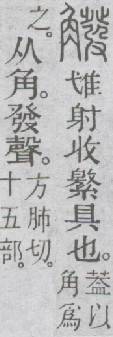 隿射收𦅾具也。葢以
角爲
之。从角。發聲。方肺切。
十五部。